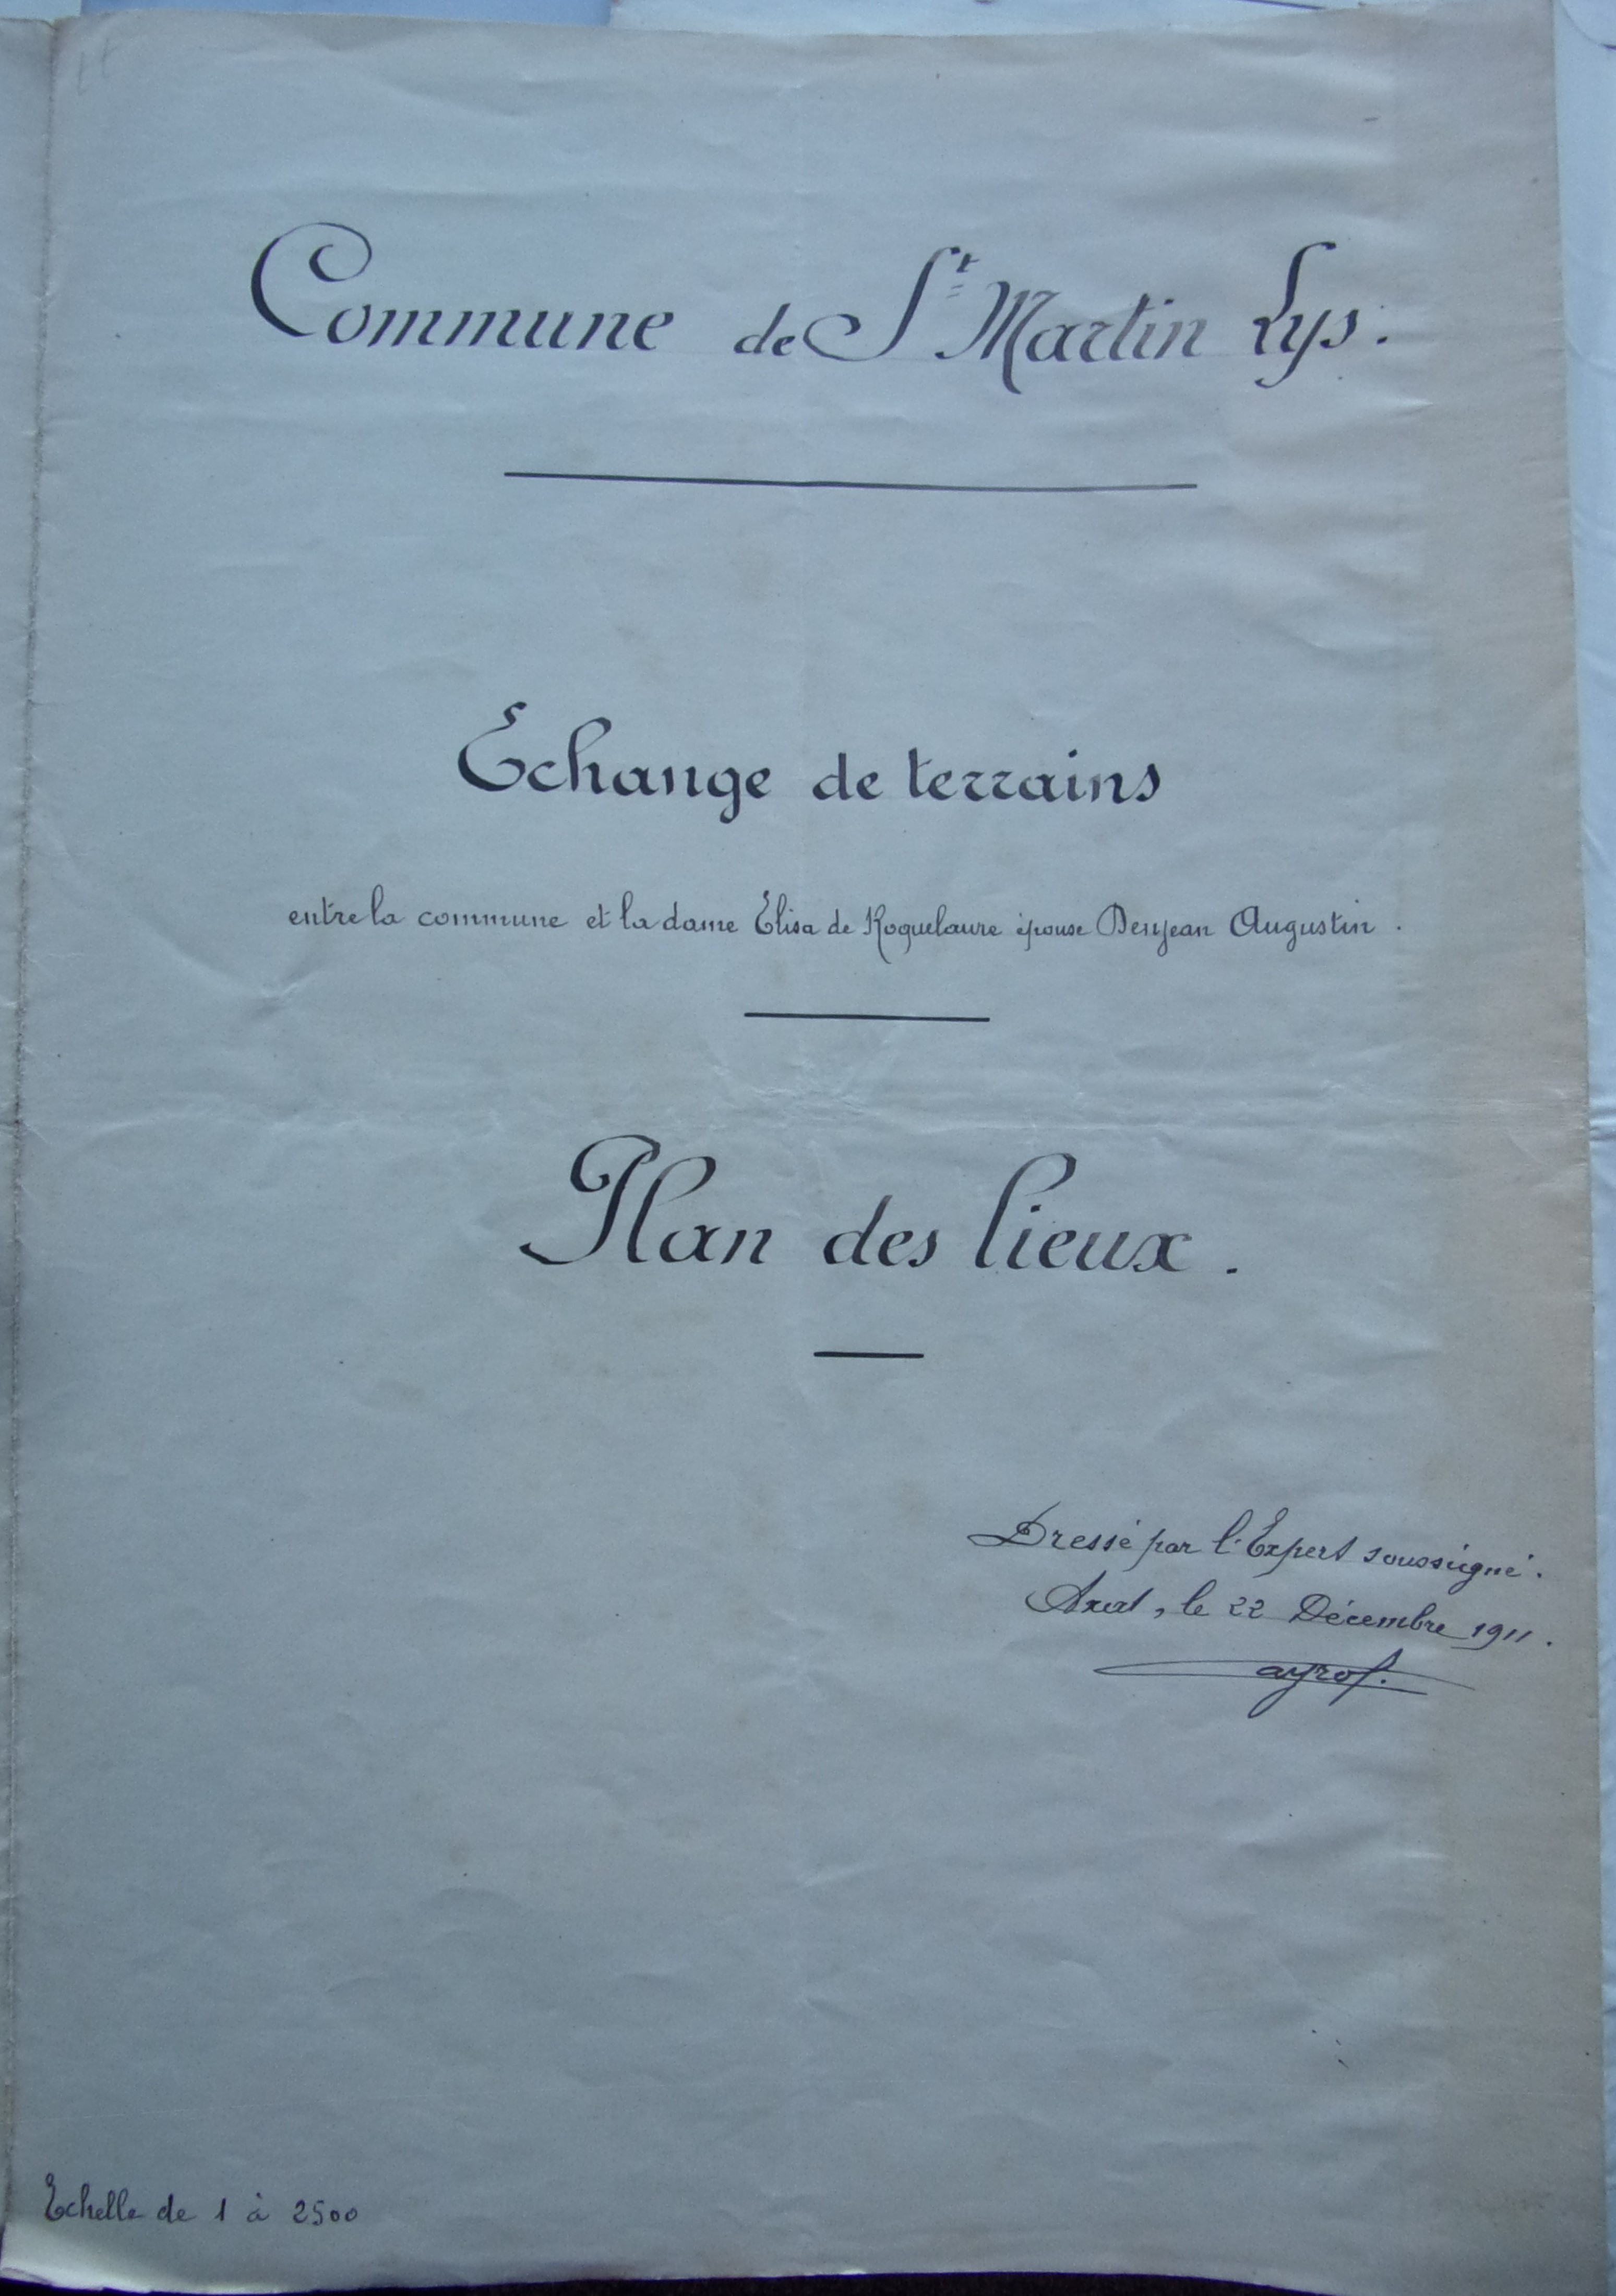 Commune de St Martin Lys.
Echange de terrains
entre la commune et la dame Elisa de Roquelaure épouse Denjean Augustin.
Plan des lieux.
Dressé par l'Expert soussigné.
Axat, le 22 Décembre 1911.
Echelle de 1 à 2500